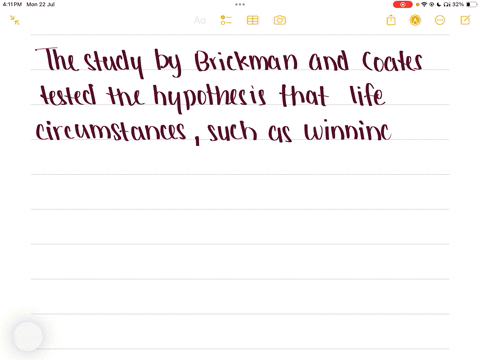 4:11 PM Mon 22 Jul
32%
Aa
The study by Brickman and Coates
tested the hypothesis that life
circumstances, such as winninc